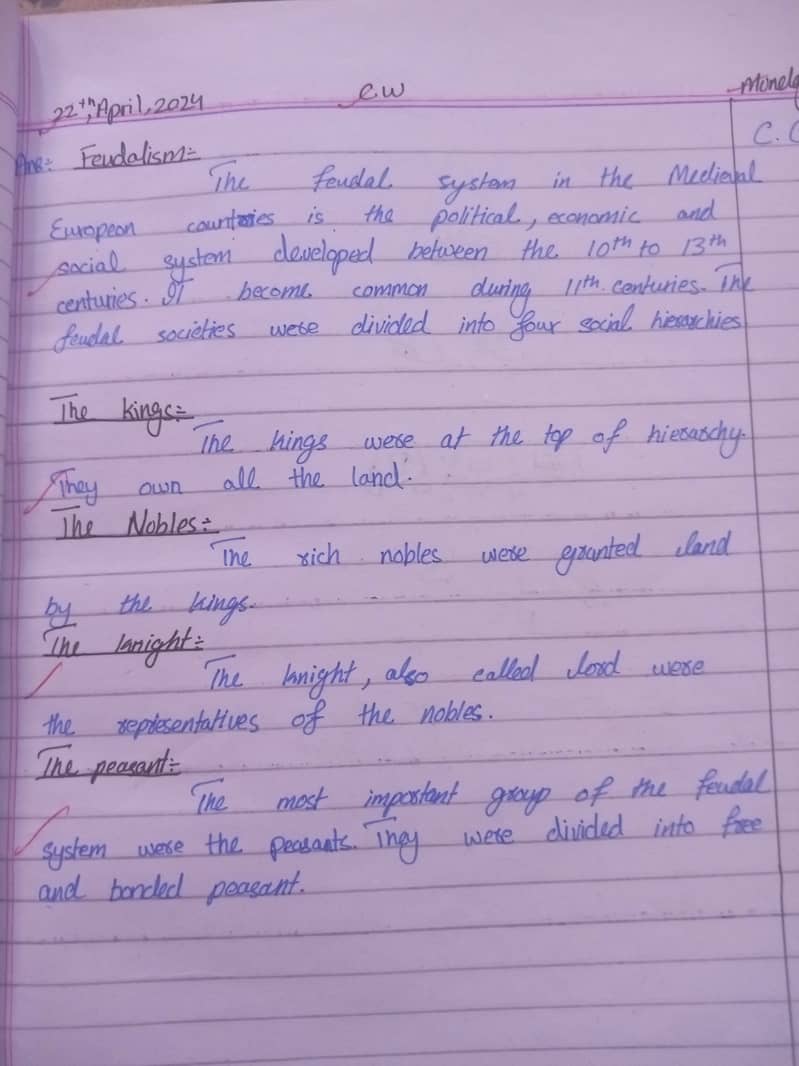 22th, April, 2024 C.W
Ans:- Feudalism:-
The feudal system in the Medieval
European countries is the political, economic and
social system developed between the 10th to 13th
centuries. It become common during 11th centuries. The
feudal societies were divided into four social hierarchies
The kings:-
The kings were at the top of hierarchy.
They own all the land.
The Nobles:-
The rich nobles were granted land
by the kings.
The knight:-
The knight, also called lord were
the representatives of the nobles.
The peasant:-
The most important group of the feudal
system were the peasants. They were divided into free
and bonded peasant.